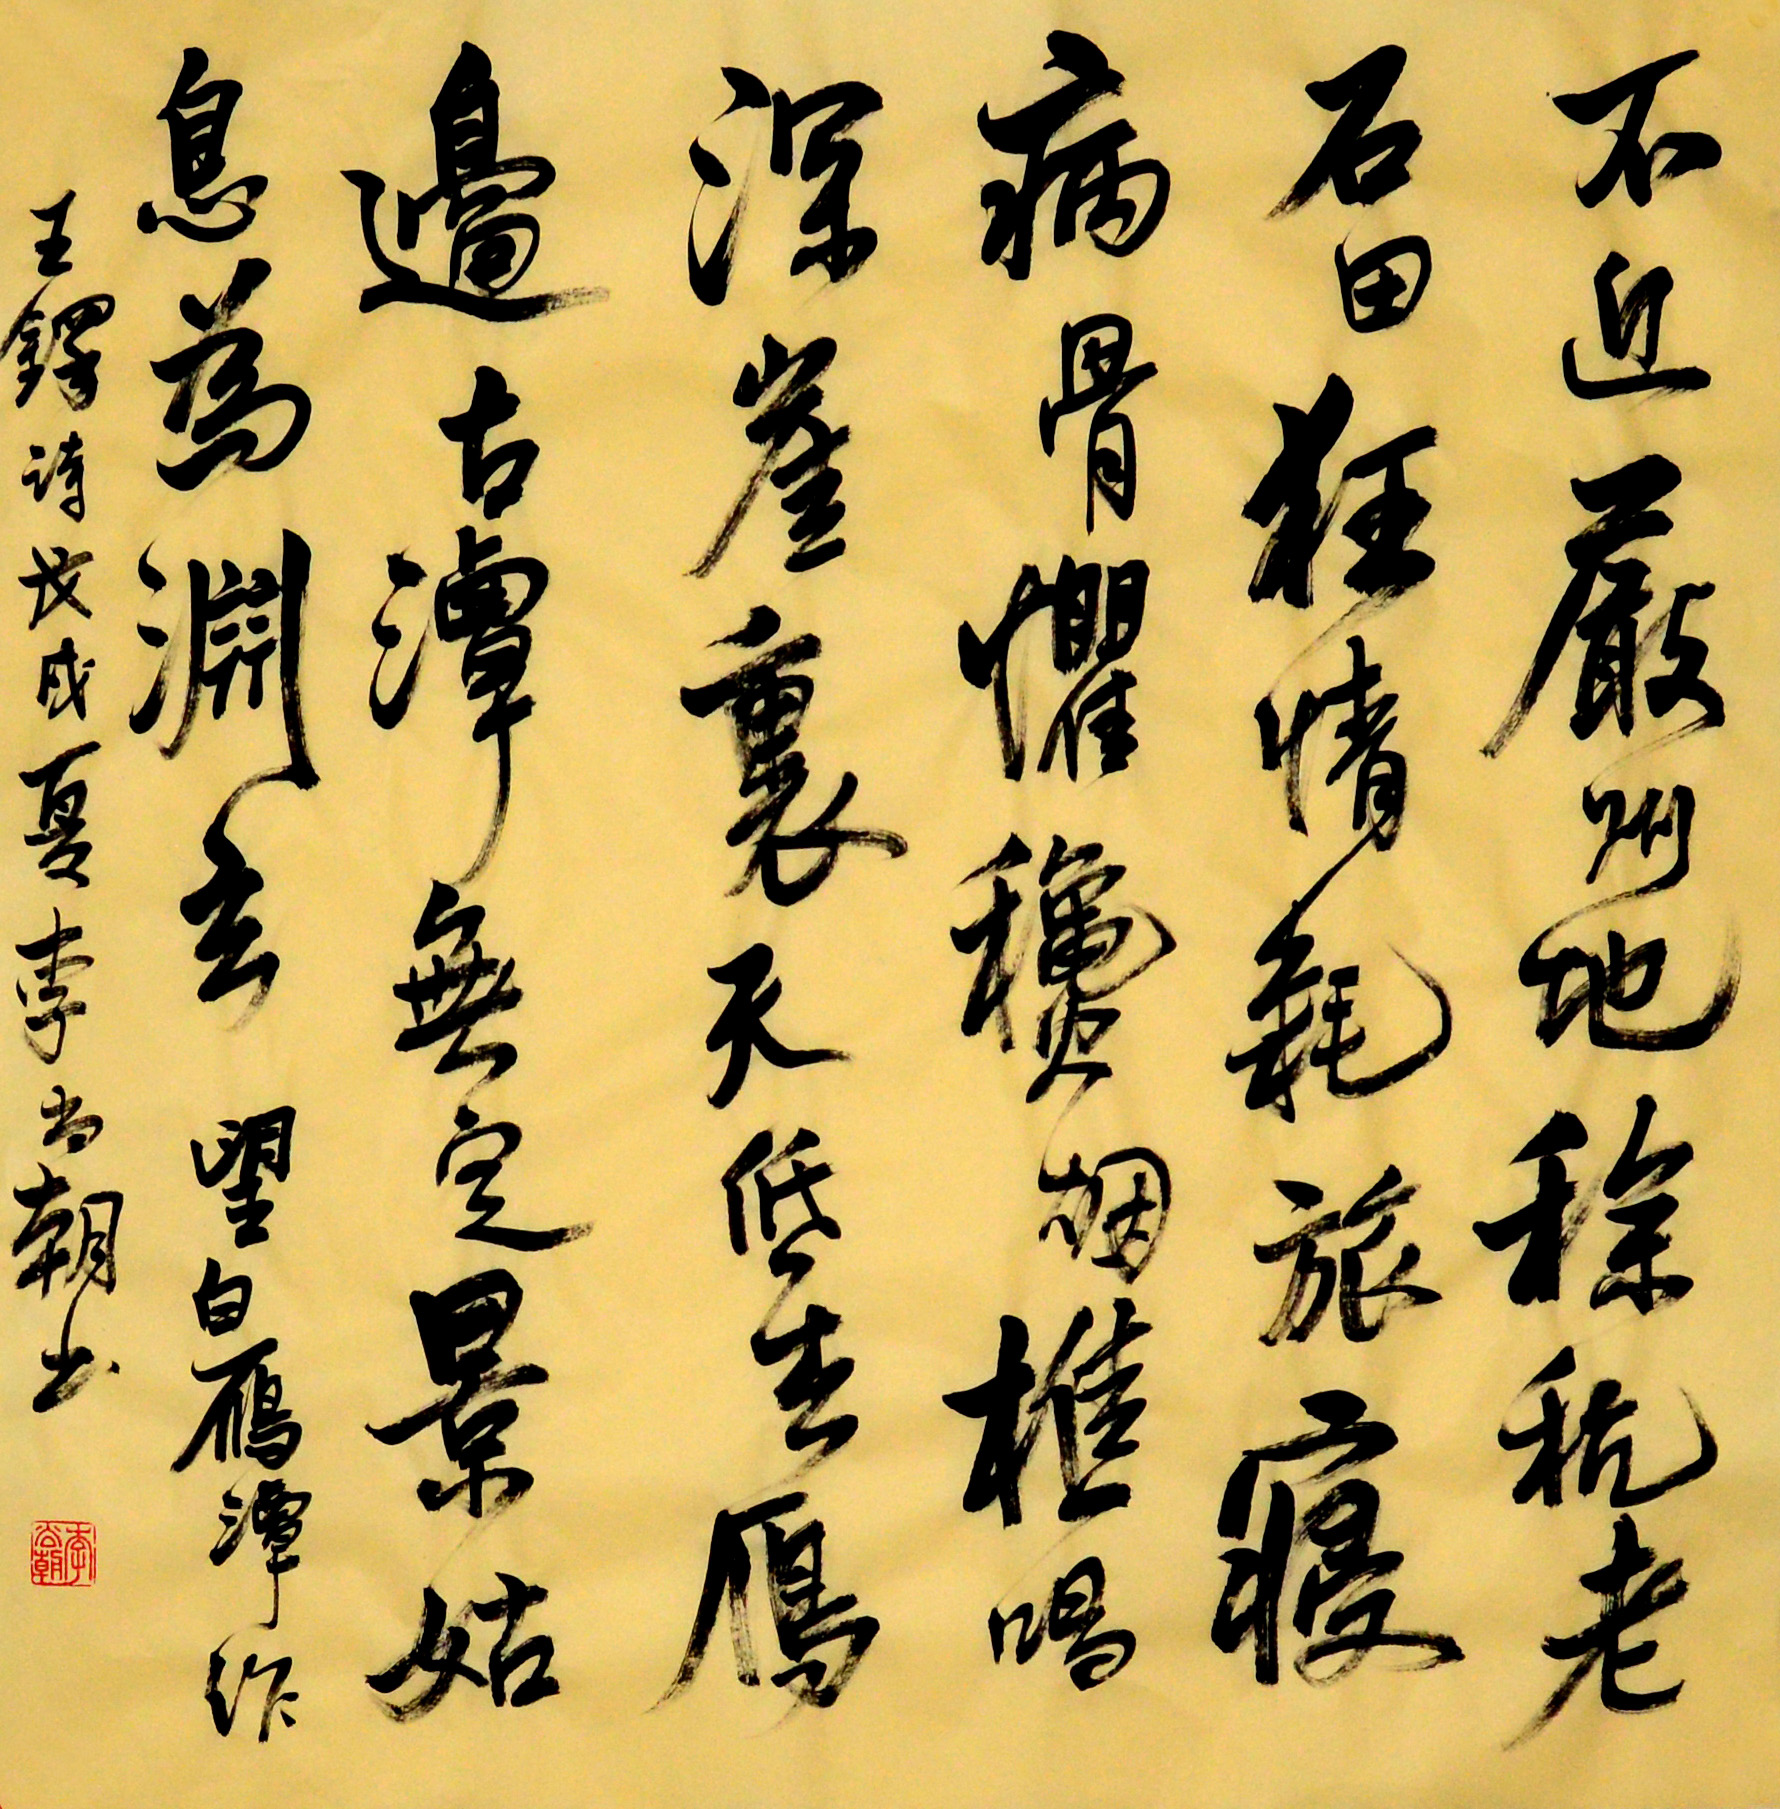 不近嚴州地稌秔老
石田狂情耗旅寢
病骨懼穰烟樵唱
深崖裏天低去鴈
邊古潭無定景姑
息為淵玄 望白鴈潭作
王鐸詩戊戌夏李尚朝书
李尚朝